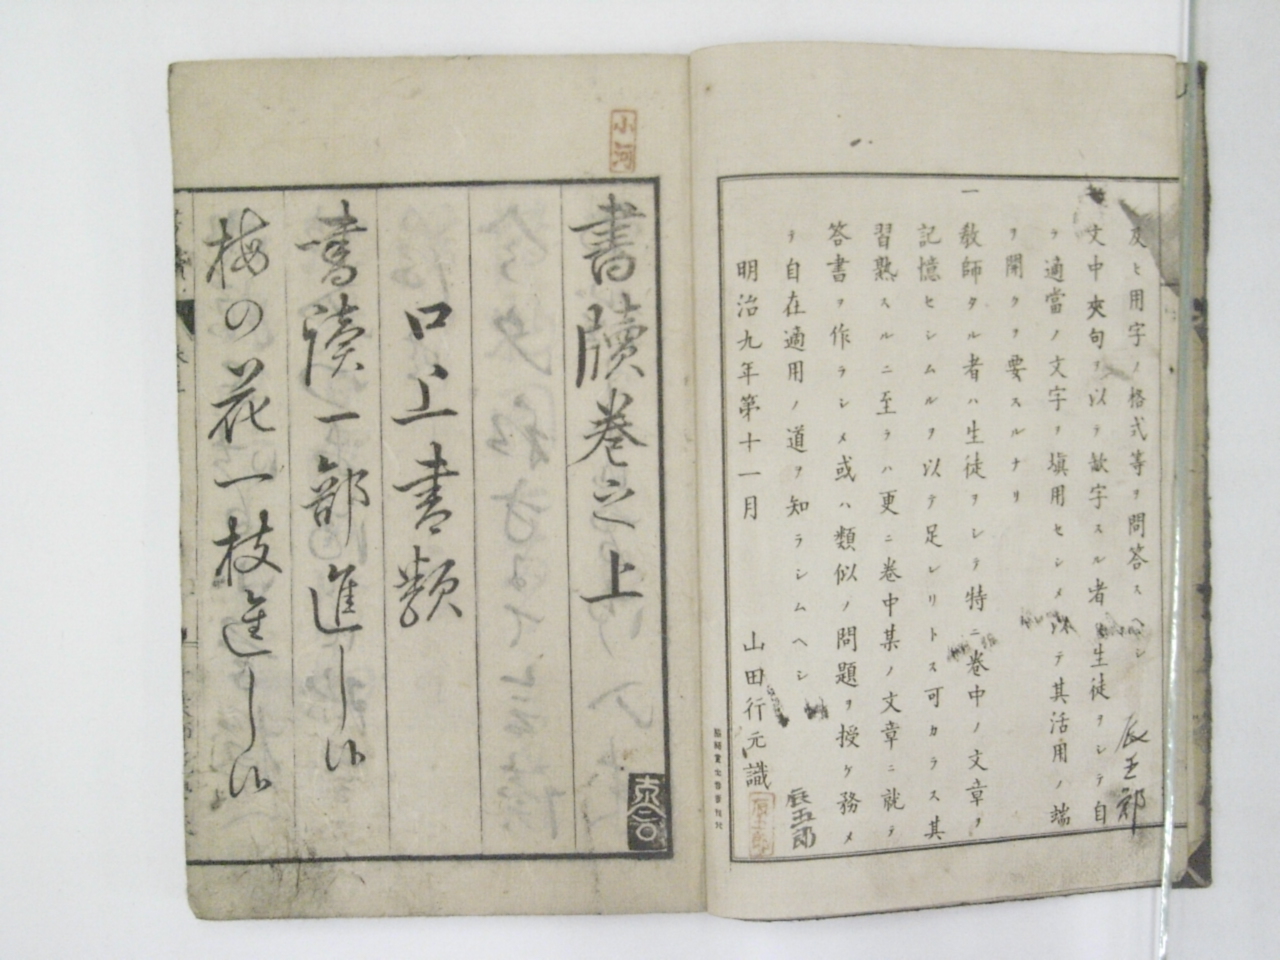 及ヒ用字ノ格式等ヲ問答スヘシ
文中夾句ヲ以テ歓字スル者ハ生徒ヲシテ自
ラ適當ノ文字ヲ塡用セシメ以テ其活用ノ端
ヲ開クヲ要スルナリ
一
教師タル者ハ生徒ヲシテ特ニ卷中ノ文章ヲ
記憶セシムルヲ以テ足レリトス可カラス其
習熟スルニ至ラハ更ニ卷中某ノ文章ニ就テ
答書ヲ作ラシメ或ハ類似ノ問題ヲ授ケ務メ
テ自在適用ノ道ヲ知ラシムヘシ
明治九年第十一月
山田行元識
辰五郎
辰五郎
小河
書牘卷之上
口上書類
書讀一部進し候
梅の花一枝進し候